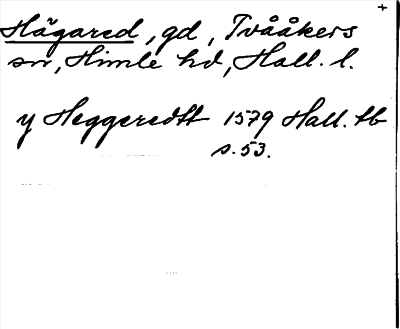 +
Hägared, gd, Tvååkers
sn, Himle hd, Hall. l.
y Heggeredtt 1579 Hall. tb
s. 53.